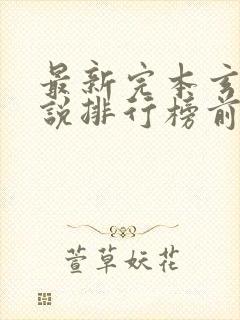 最新完本玄
說排行榜前
萱草妖花